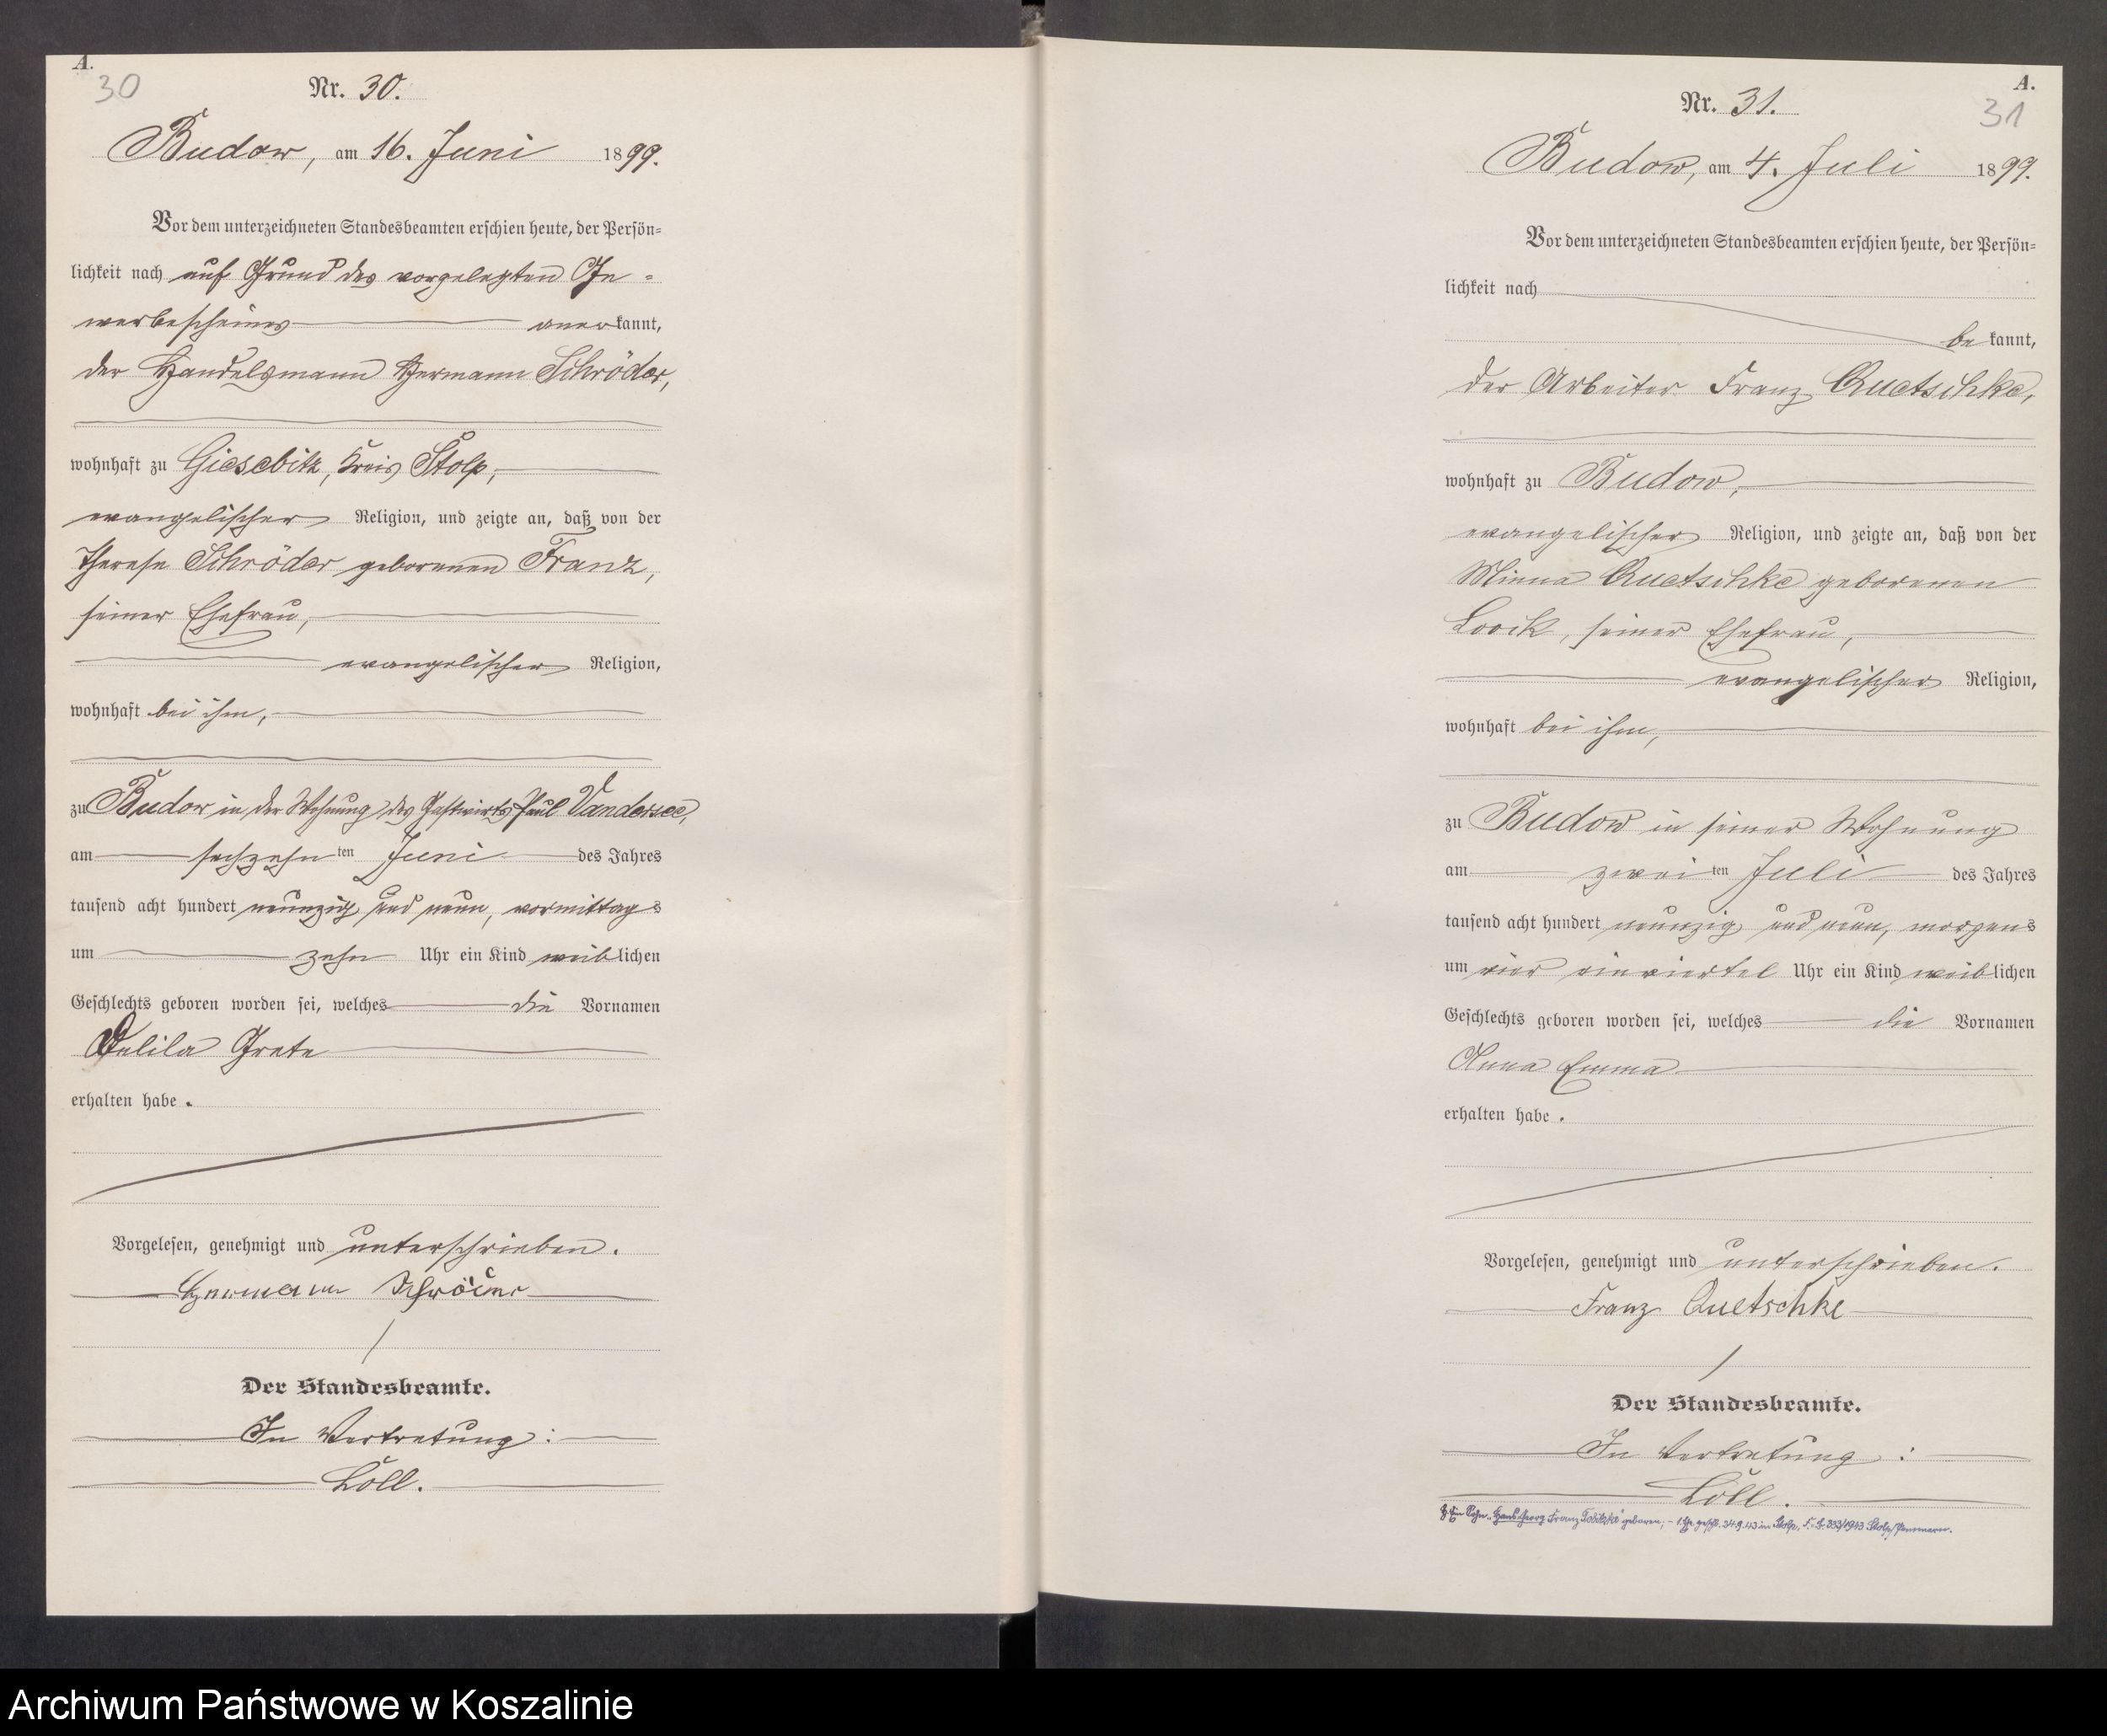 A.
30
Nr. 30.
Budow, am 16. Juni 1899.
Vor dem unterzeichneten Standesbeamten erschien heute, der Persön-
lichkeit nach auf Grund des vorgelegten Ge-
werbescheines anerkannt,
der Handelsmann Hermann Schröder,
wohnhaft zu Giesebitz, Kreis Stolp,
evangelischer Religion, und zeigte an, daß von der
Therese Schröder geborenen Franz,
seiner Ehefrau,
evangelischer Religion,
wohnhaft bei ihm,
zu Budow in der Wohnung des Gastwirts Paul Vandersee,
am sechzehnten Juni des Jahres
tausend acht hundert neunzig und neun, vormittags
um zehn Uhr ein Kind weiblichen
Geschlechts geboren worden sei, welches die Vornamen
Delila Grete
erhalten habe.
Vorgelesen, genehmigt und unterschrieben.
Hermann Schröder
Der Standesbeamte.
In Vertretung:
Löll.
A.
31
Nr. 31.
Budow, am 4. Juli 1899.
Vor dem unterzeichneten Standesbeamten erschien heute, der Persön-
lichkeit nach
bekannt,
der Arbeiter Franz Quetschke,
wohnhaft zu Budow,
evangelischer Religion, und zeigte an, daß von der
Minna Quetschke geborenen
Loock, seiner Ehefrau,
evangelischer Religion,
wohnhaft bei ihm,
zu Budow in seiner Wohnung
am zweiten Juli des Jahres
tausend acht hundert neunzig und neun, morgens
um vier einviertel Uhr ein Kind weiblichen
Geschlechts geboren worden sei, welches die Vornamen
Anna Emma
erhalten habe.
Vorgelesen, genehmigt und unterschrieben.
Franz Quetschke
Der Standesbeamte.
In Vertretung:
Löll.
Ein Sohn Franz geboren; - 1. Ehe geschl. 24.9.43 in Stolp, 333/1943 Stolp/Pommern.
Archiwum Państwowe w Koszalinie